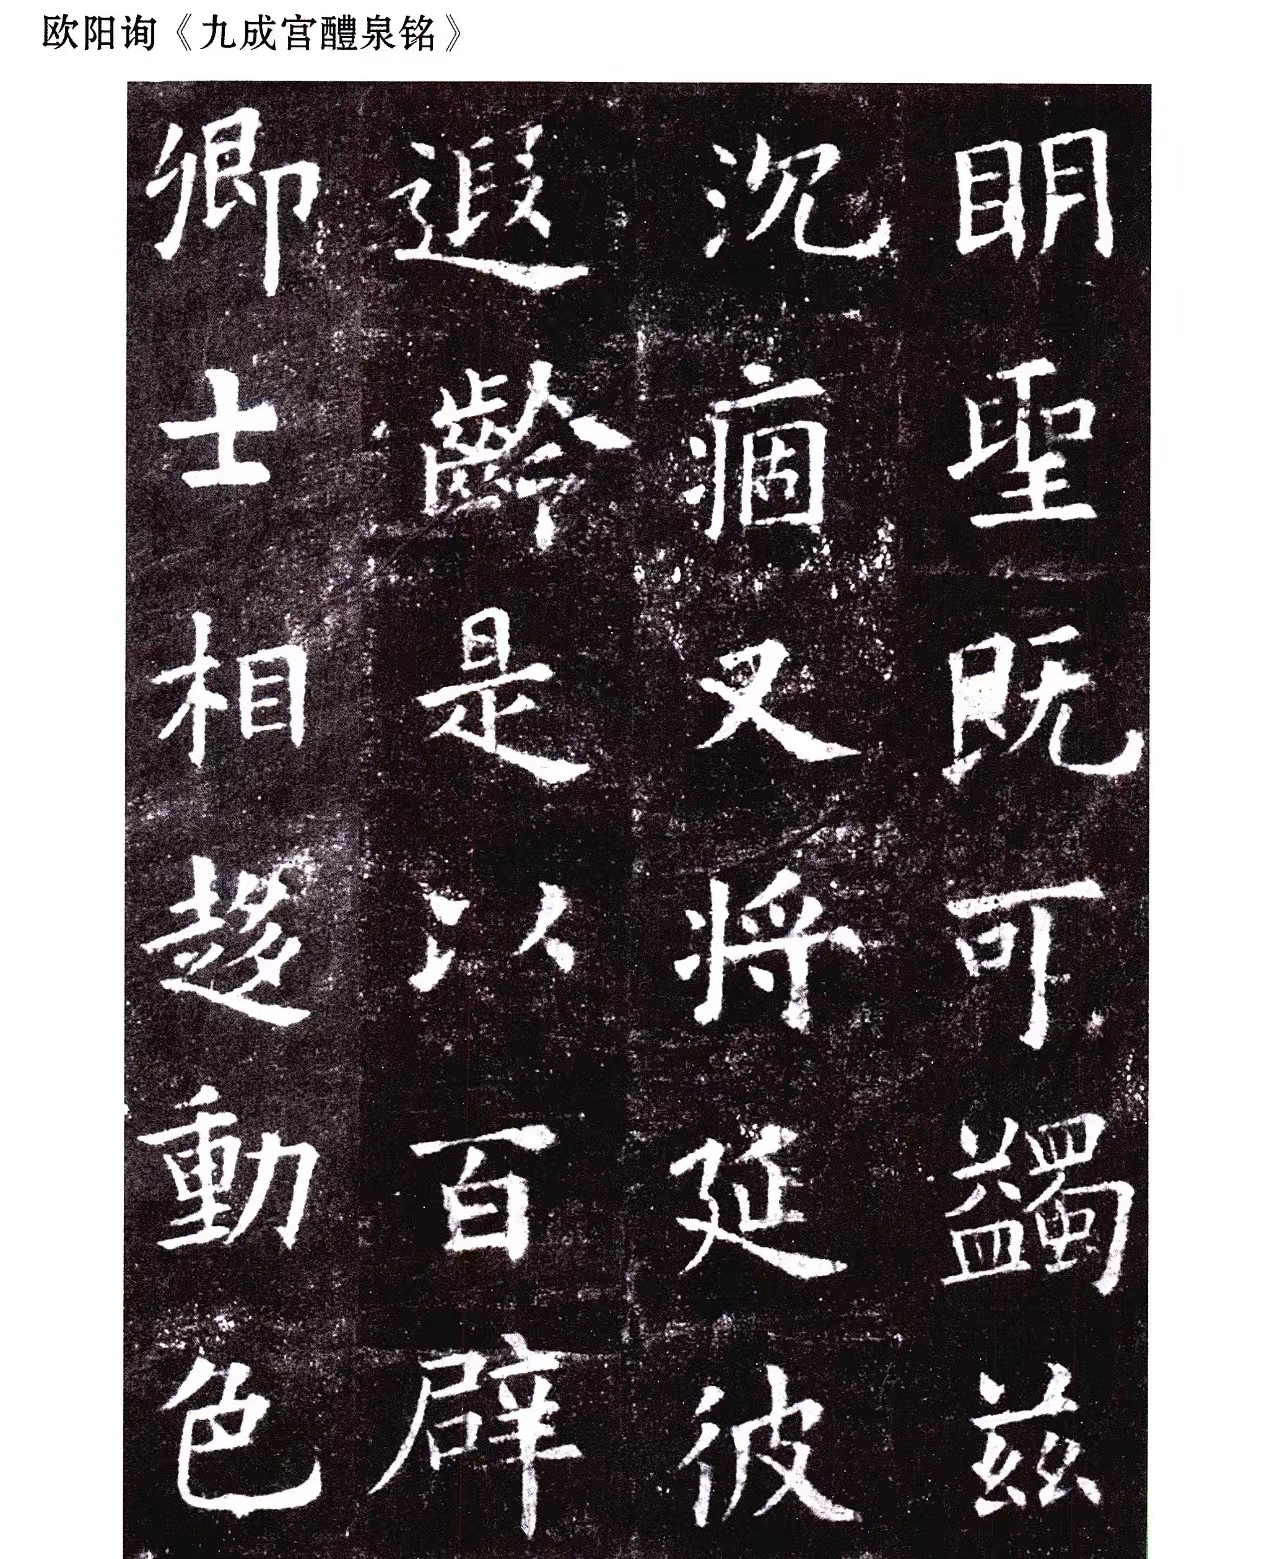 欧阳询《九成宫醴泉铭》
明聖既可蠲兹
沉痼又将延彼
遐齡是以百辟
卿士相趍動色